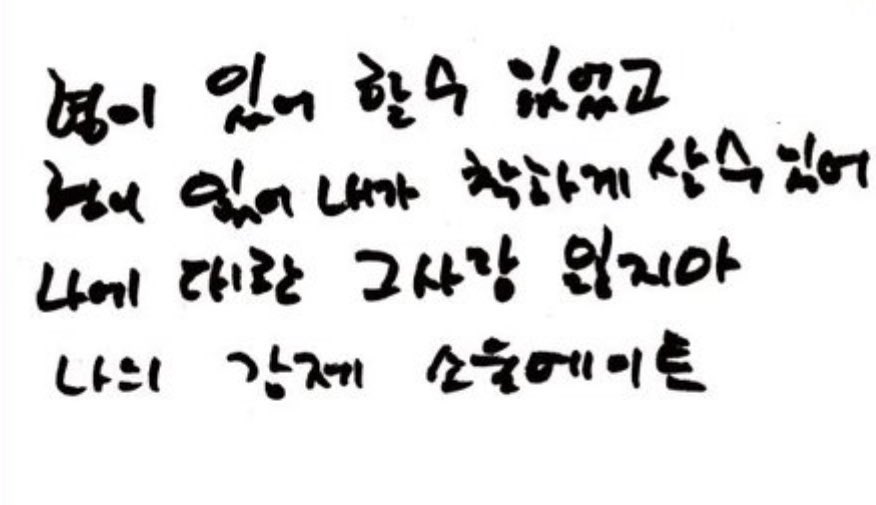 형이 있어 할수 있었고
형이 있어 내가 착하게 살수 있어
나에 대한 그사랑 잊지마
나의 강제 소울메이트